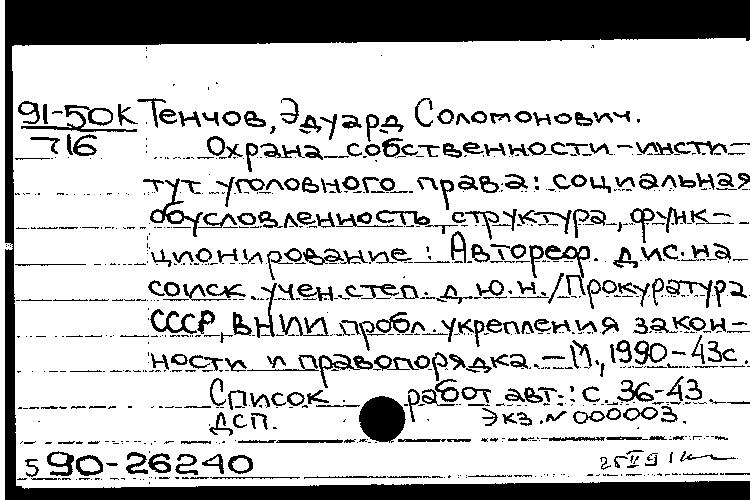 91-50к Тенчов, Эдуард Соломонович.
716 Охрана собственности-инсти-
тут уголовного права: социальная
обусловленность, структура, функ-
ционирование: Автореф. дис. на
соиск. учен. степ. д. ю. н. / Прокуратура
СССР, ВНИИ пробл. укрепления закон-
ности и правопорядка. – М., 1990 – 43с.
Список работ авт.: с. 36-43.
ДСП. Экз. № 000003.
5 90-26240